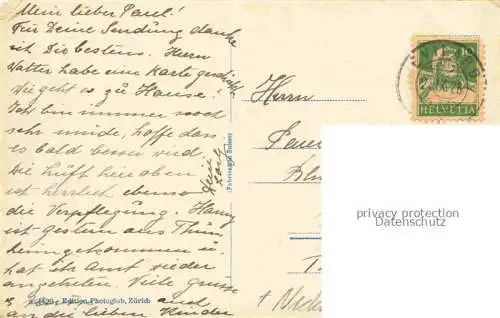 Mein lieber Paul!
Für Deine Sendung danke
ich Dir bestens. Herrn
Walter habe eine Karte geschickt.
Wie geht es zu Hause?
Ich bin immer noch
sehr müde, hoffe dass
es bald besser wird.
Die Luft hier oben
ist herrlich ebenso
die Verpflegung. Hanny
ist gestern aus Thun
heimgekommen u.
hat ihr Amt wieder
angetreten. Viele Grüsse
auch
an die lieben Kinder
Dein
(Fabriqué en Suisse)
Edition Photoglob, Zürich
Herrn
10
HELVETIA
privacy protection
Datenschutz